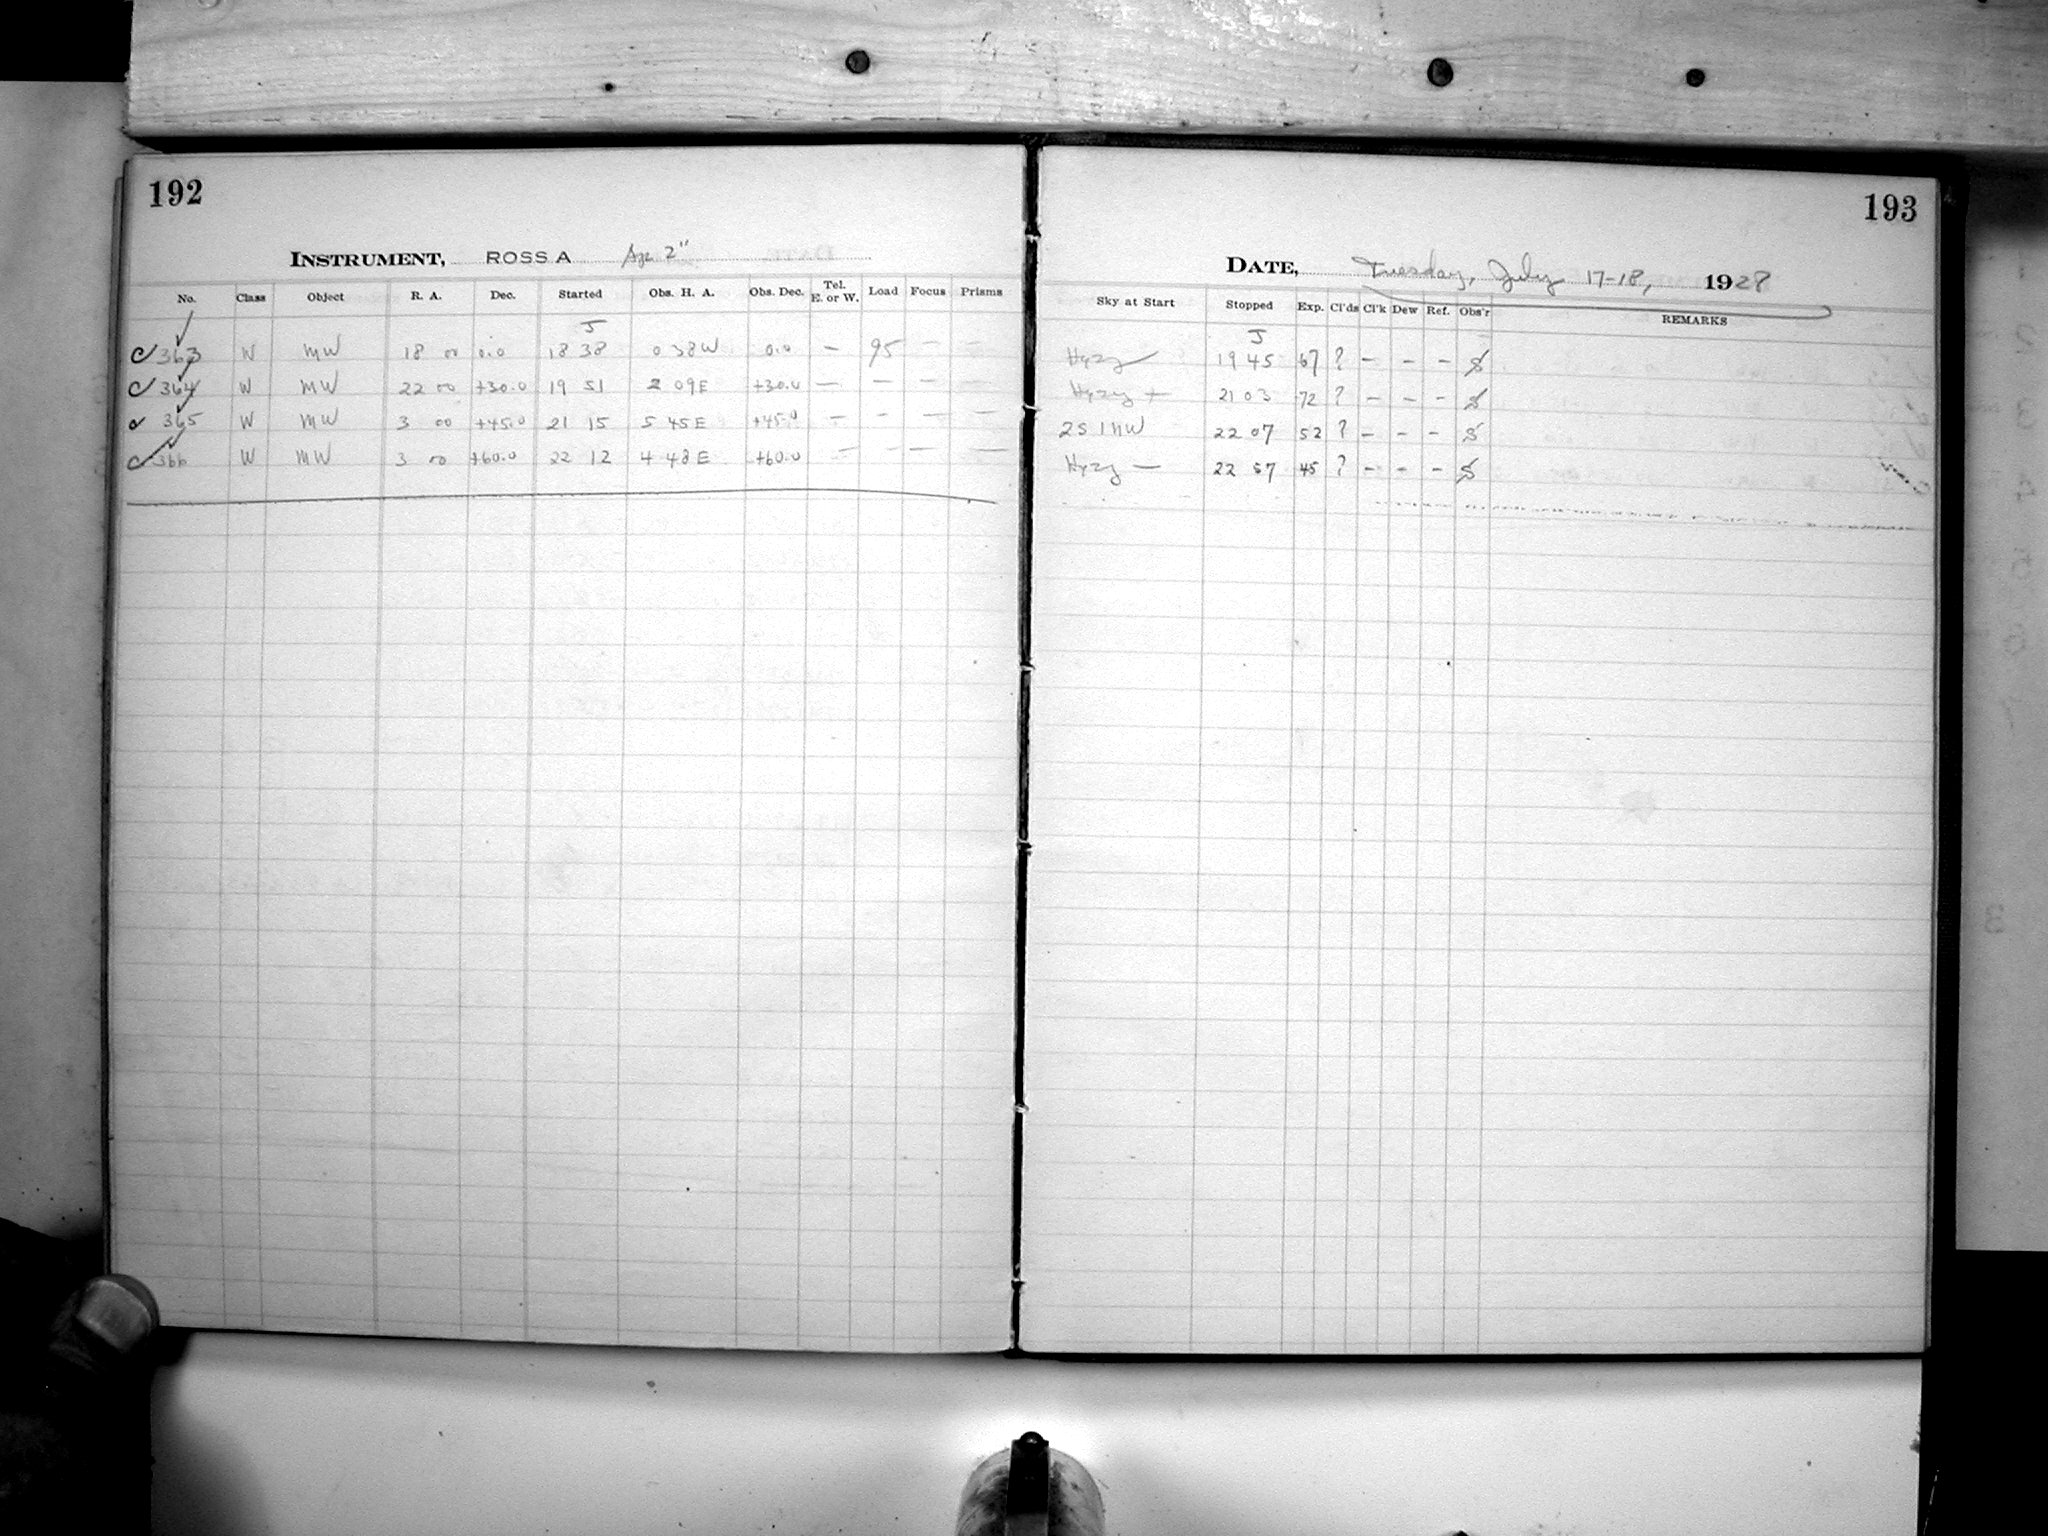 192
INSTRUMENT, ROSS A Ap. 2"
No. Class Object R. A. Dec. Started Obs. H. A. Obs. Dec. Tel. E. or W. Load Focus Prisms
J
363 W MW 18 00 0.0 18 38 0 38W 0.0 — 95 — —
364 W MW 22 00 +30.0 19 51 2 09E +30.0 — — — —
365 W MW 3 00 +45.0 21 15 5 45E +45.0 — — — —
366 W MW 3 00 +60.0 22 12 4 48E +60.0 — — — —
193
DATE, Tuesday, July 17-18, 1928
Sky at Start Stopped Exp. Cl'ds Cl'k Dew Ref. Obs'r REMARKS
J
Hazy 19 45 67 ? — — — S
Hazy + 21 03 72 ? — — — S
2S 1NW 22 07 52 ? — — — S
Hazy — 22 57 45 ? — — — S